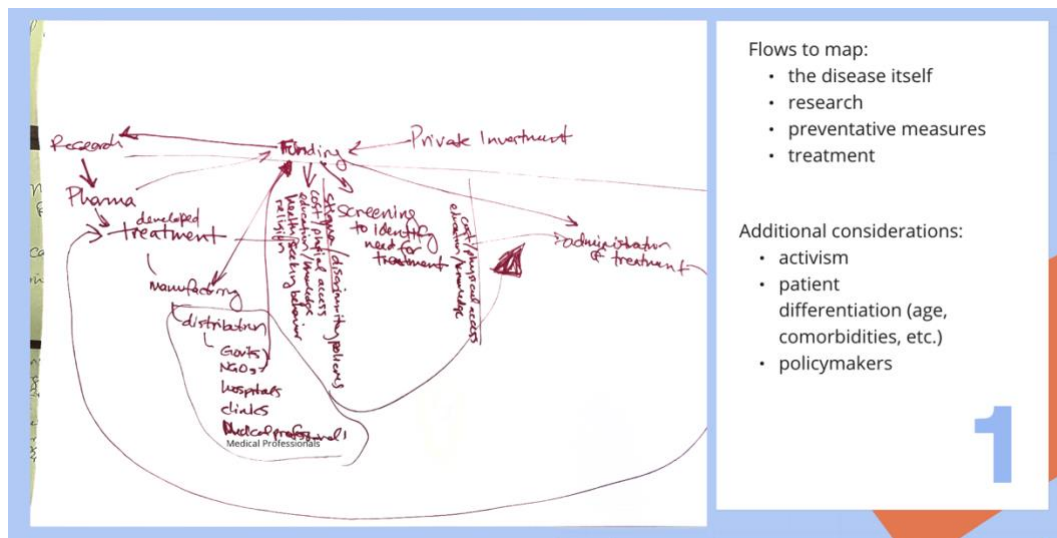 Research
Funding
Private Investment
Pharma
developed
treatment
manufacturing
distribution
Gov'ts
NGOs
hospitals
clinics
Medical professionals
Medical Professionals
stigma / discriminatory policies
cost / physical access
education / knowledge
health seeking behavior
religion
screening
to identify
need for
treatment
cost / physical access
education / knowledge
administration
of treatment
Flows to map:
• the disease itself
• research
• preventative measures
• treatment
Additional considerations:
• activism
• patient
differentiation (age,
comorbidities, etc.)
• policymakers
1